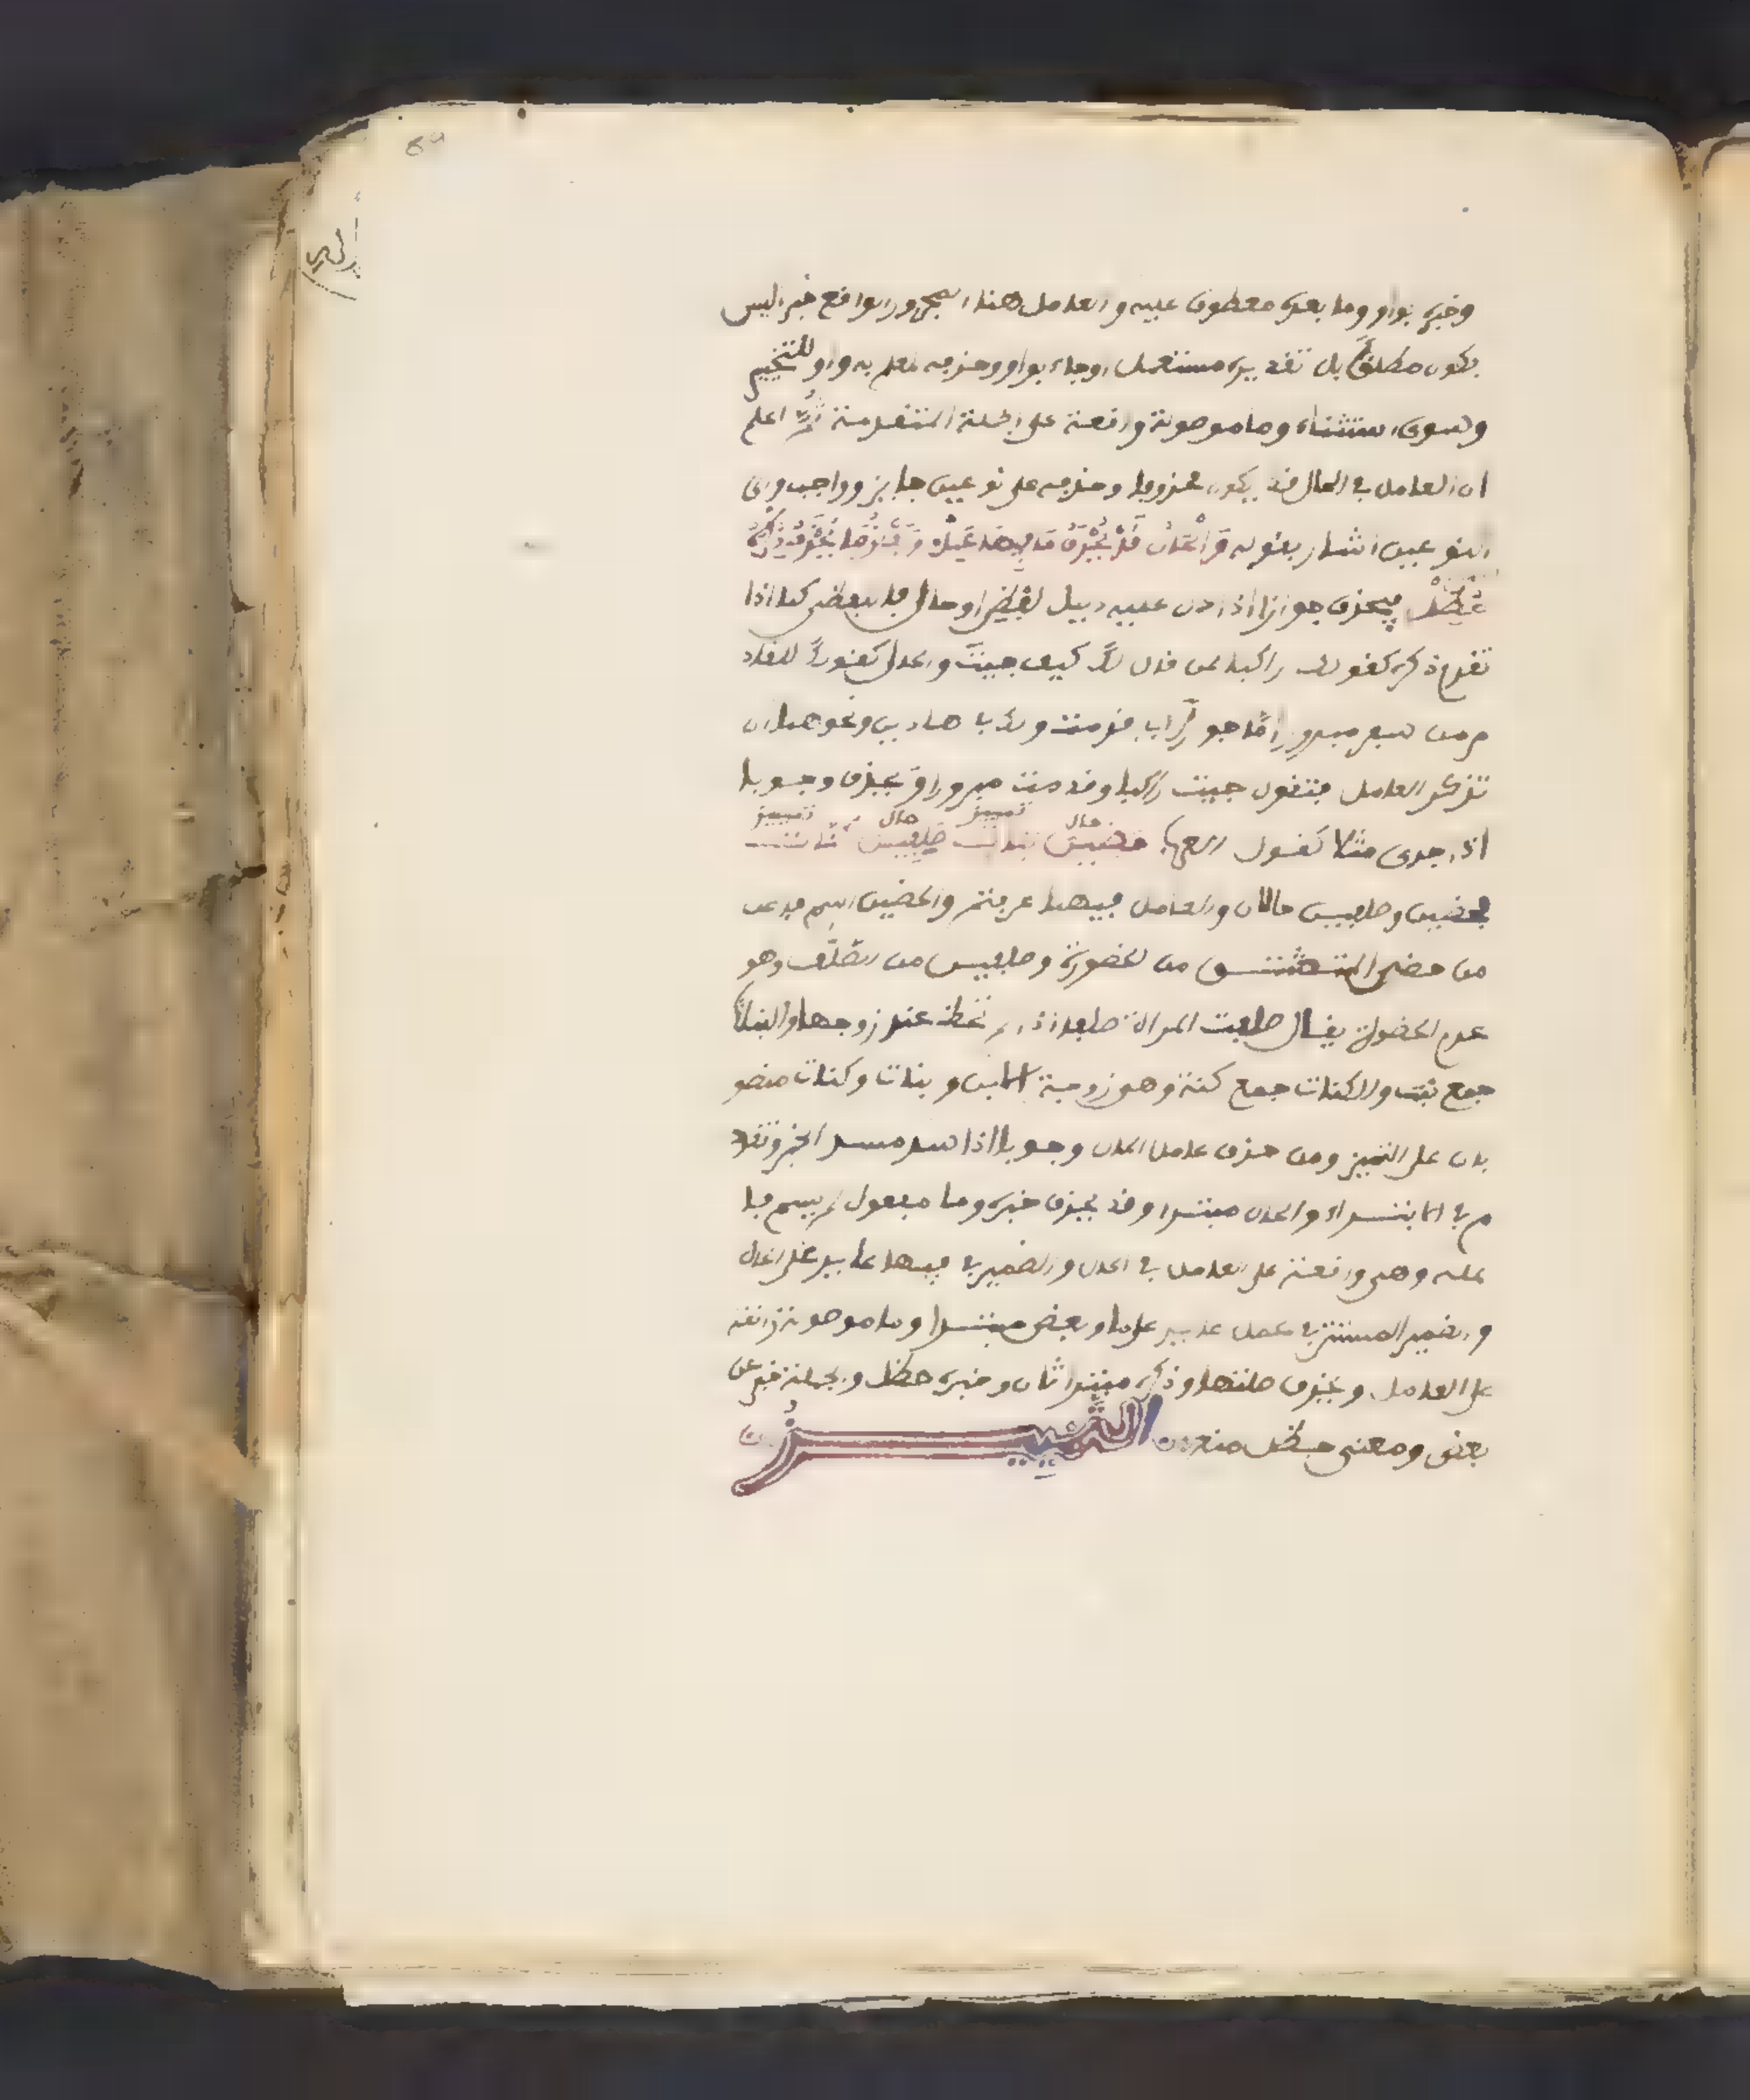 وخبره بواو وما بعده معطوف عليه والعامل هنا المجرور الواقع خبرا ليس
يكون مطلقا بل تقديره مستعمل او جاء بواو وحذفه لعلم به واو للتخيير
وسوى استثناء وما موصولة واقعة على الجملة المتقدمة ثم اعلم
ان العامل في الحال قد يكون محذوفا وحذفه على نوعين جايز وواجب والى
النوعين اشار بقوله والحال قد يحذف ما فيها عمل وبعض ما يحذف ذكره
حظل فيحذف جوازا اذا دل عليه دليل لفظي او حالي فاللفظي كما اذا
تقدم ذكره كقولك راكبا لمن قال لك كيف جيت والحالي كقولك للقاد
م من سفر مبرورا ماجورا اي قدمت ولك يا هاديا ونحو هما ان
تذكر العامل فتقول جيت راكبا وقدمت مبرورا ويحذف وجوبا
اذا جرى مثلا كقول العرب حظيين بنات صلفين كنات
حال تمييز حال تمييز
فحظيين وصلفين حالان والعامل فيهما عرفتم والحظيين اسم فاعل
من حظي من الحضوة وصلفين من الصلف وهو
عدم الحضوة يقال صلفت المراة صلفا اذا لم تحظ عند زوجها والبنات
جمع بنت والكنات جمع كنة وهو زوجة الابن وبنات وكنات منصو
بان على التمييز ومن حذف عامل الحال وجوبا اذا سد مسد الخبر وتقد
م في الابتداء والحال مبتدا وقد يحذف خبره وما مفعول لم يسم فا
عله وهي واقعة على العامل في الحال والضمير في فيها عايد على الحال
والضمير المستتر في عمل عايد على ما وبعض مبتدا وما موصولة واقعة
على العامل ويحذف صلتها وذكره مبتدا ثان وخبره حظل والجملة خبر عن
بعض ومعنى حظل منع التمييز